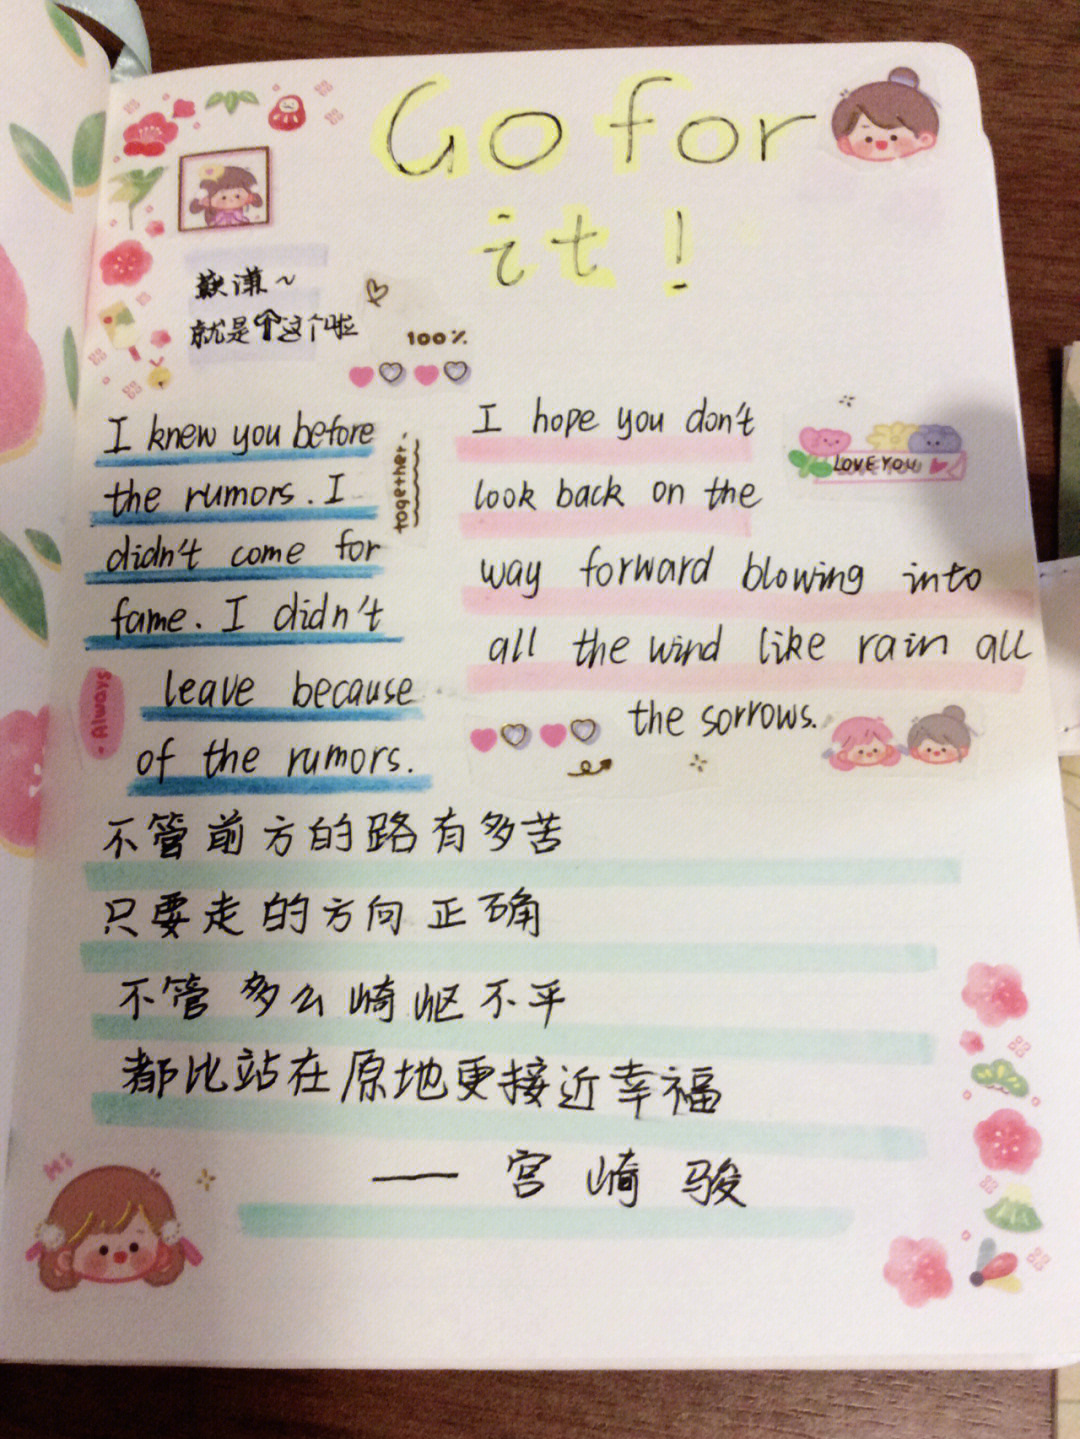 Go for
it!
就是个这个啦
100%
I knew you before
the rumors. I
didn't come for
fame. I didn't
leave because
of the rumors.
together.
Always
I hope you don't
look back on the
way forward blowing into
all the wind like rain all
the sorrows.
LOVE YOU
不管前方的路有多苦
只要走的方向正确
不管多么崎岖不平
都比站在原地更接近幸福
—— 宫崎骏
Hi